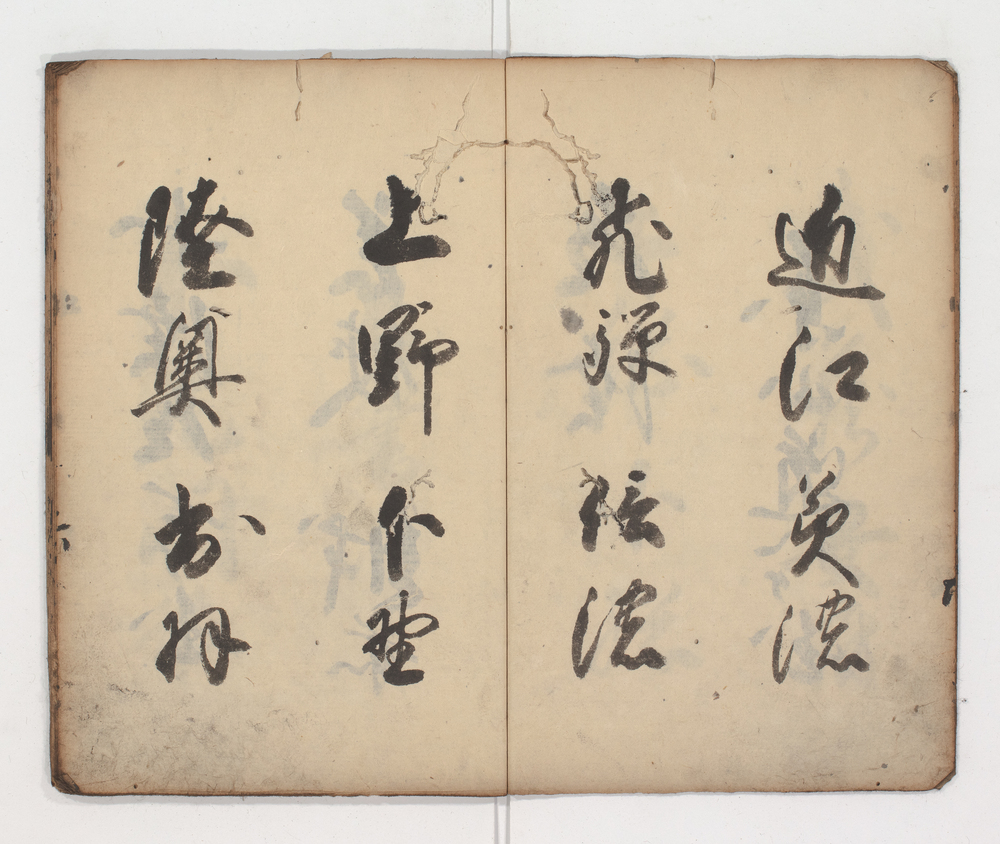 近江 美濃
飛騨 信濃
上野 下野
陸奥 出羽